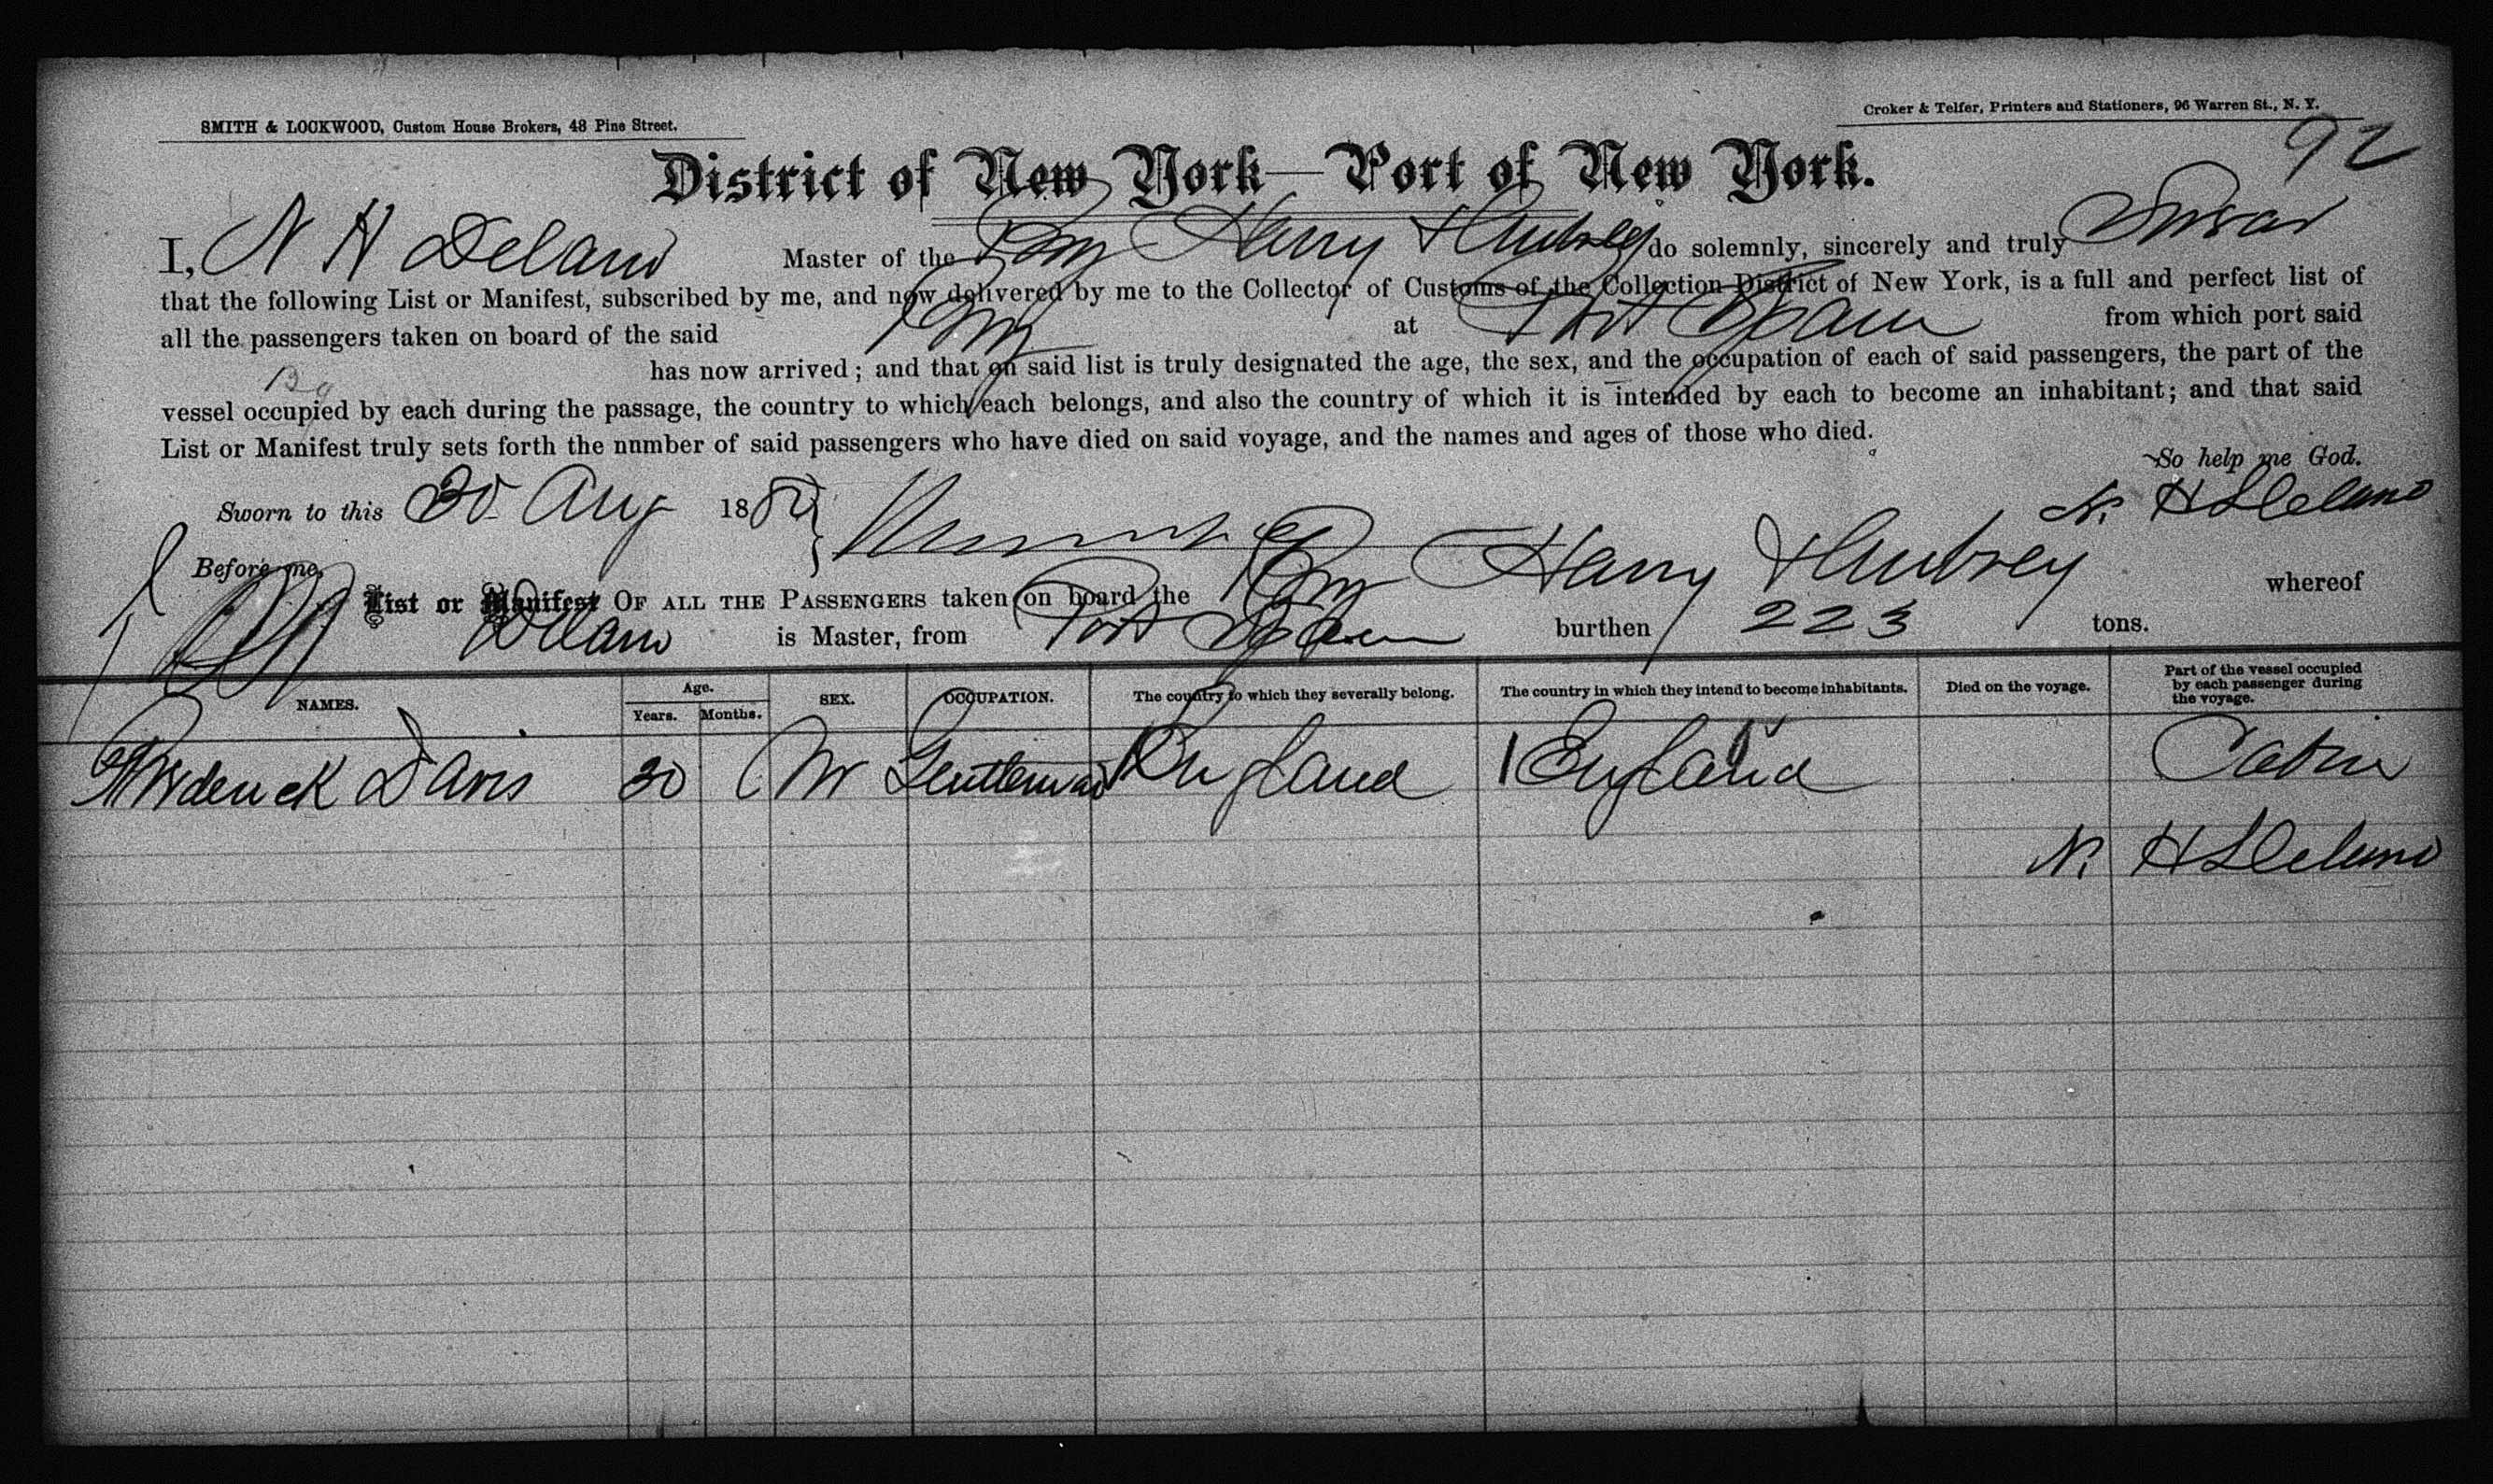 SMITH & LOCKWOOD, Custom House Brokers, 48 Pine Street.
Croker & Telfer, Printers and Stationers, 96 Warren St., N. Y.
92
District of New York—Port of New York.
I, N H Delano Master of the Brig Harry & Aubrey do solemnly, sincerely and truly Swear
that the following List or Manifest, subscribed by me, and now delivered by me to the Collector of Customs of the Collection District of New York, is a full and perfect list of
all the passengers taken on board of the said Brig at Port Spain from which port said
Bg has now arrived; and that on said list is truly designated the age, the sex, and the occupation of each of said passengers, the part of the
vessel occupied by each during the passage, the country to which each belongs, and also the country of which it is intended by each to become an inhabitant; and that said
List or Manifest truly sets forth the number of said passengers who have died on said voyage, and the names and ages of those who died.
So help me God.
Sworn to this 30 Aug 188 N. H Delano
Before me,
List or Manifest OF ALL THE PASSENGERS taken on board the Brig Harry & Aubrey whereof
Delano is Master, from Port Spain burthen 223 tons.
NAMES. Age. Years. Months. SEX. OCCUPATION. The country to which they severally belong. The country in which they intend to become inhabitants. Died on the voyage. Part of the vessel occupied by each passenger during the voyage.
Frederick Davis 30 M Gentleman England England Cabin
N. H Delano